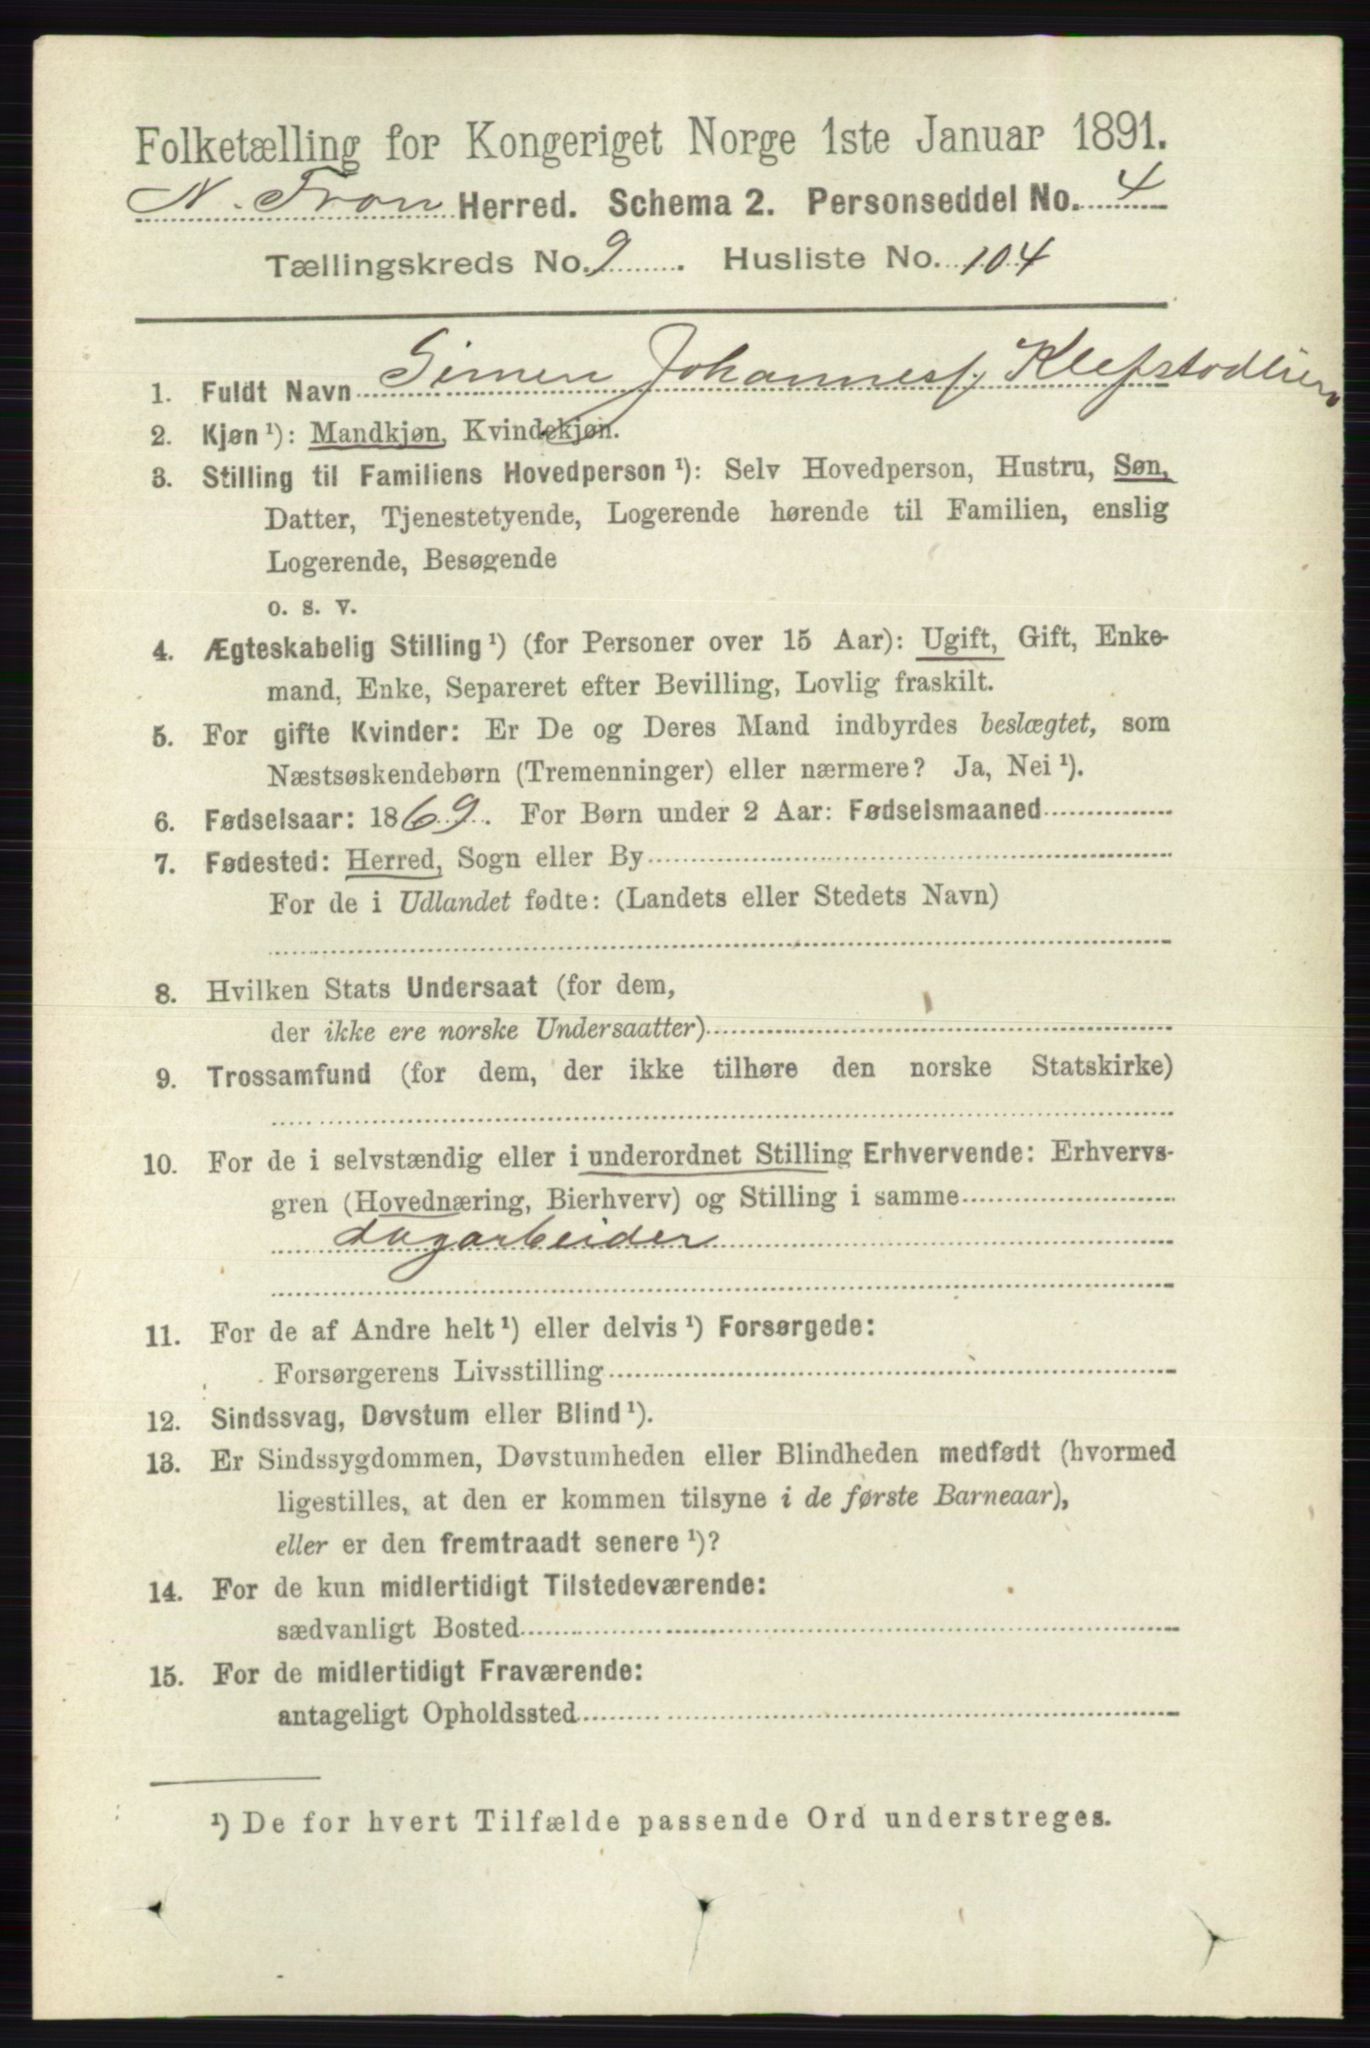 Folketælling for Kongeriget Norge 1ste Januar 1891.
N. Fron Herred. Schema 2. Personseddel No. 4
Tællingskreds No. 9. Husliste No. 104
1. Fuldt Navn Simen Johannesf. Klefstadlien
2. Kjøn ¹): Mandkjøn, Kvindekjøn.
3. Stilling til Familiens Hovedperson ¹): Selv Hovedperson, Hustru, Søn,
Datter, Tjenestetyende, Logerende hørende til Familien, enslig
Logerende, Besøgende
o. s. v.
4. Ægteskabelig Stilling ¹) (for Personer over 15 Aar): Ugift, Gift, Enke-
mand, Enke, Separeret efter Bevilling, Lovlig fraskilt.
5. For gifte Kvinder: Er De og Deres Mand indbyrdes beslægtet, som
Næstsøskendebørn (Tremenninger) eller nærmere? Ja, Nei ¹).
6. Fødselsaar: 1869. For Børn under 2 Aar: Fødselsmaaned
7. Fødested: Herred, Sogn eller By
For de i Udlandet fødte: (Landets eller Stedets Navn)
8. Hvilken Stats Undersaat (for dem,
der ikke ere norske Undersaatter)
9. Trossamfund (for dem, der ikke tilhøre den norske Statskirke)
10. For de i selvstændig eller i underordnet Stilling Erhvervende: Erhvervs-
gren (Hovednæring, Bierhverv) og Stilling i samme
Dagarbeider
11. For de af Andre helt ¹) eller delvis ¹) Forsørgede:
Forsørgerens Livsstilling
12. Sindssvag, Døvstum eller Blind ¹).
13. Er Sindssygdommen, Døvstumheden eller Blindheden medfødt (hvormed
ligestilles, at den er kommen tilsyne i de første Barneaar),
eller er den fremtraadt senere ¹)?
14. For de kun midlertidigt Tilstedeværende:
sædvanligt Bosted
15. For de midlertidigt Fraværende:
antageligt Opholdssted
¹) De for hvert Tilfælde passende Ord understreges.